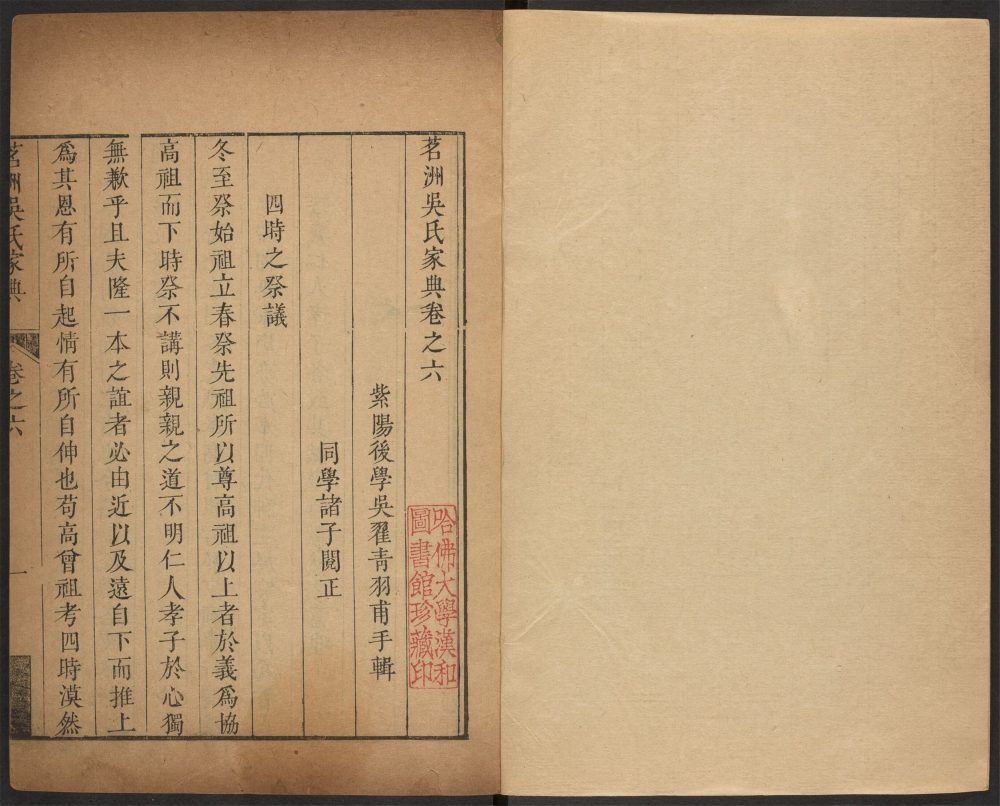 茗洲吳氏家典卷之六
哈佛大學漢和
圖書館珍藏印
紫陽後學吳翟青羽甫手輯
同學諸子閱正
四時之祭議
冬至祭始祖立春祭先祖所以尊高祖以上者於義爲協
高祖而下時祭不講則親親之道不明仁人孝子於心獨
無歉乎且夫隆一本之誼者必由近以及遠自下而推上
爲其恩有所自起情有所自伸也苟高曾祖考四時漠然
茗洲吳氏家典
卷之六
一